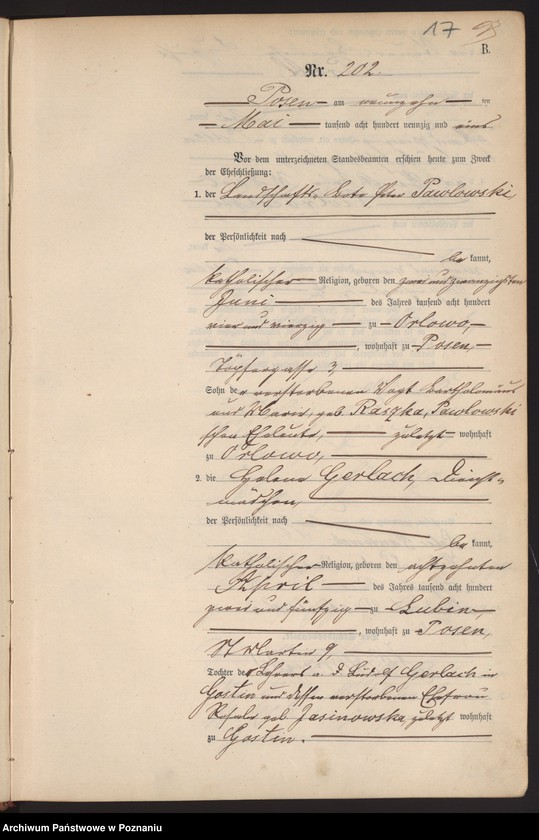 17
B.
Nr. 202.
Posen am neunzehn ten
Mai tausend acht hundert neunzig und eins
Vor dem unterzeichneten Standesbeamten erschien heute zum Zweck
der Eheschließung:
1. der Landschafts-Bote Peter Pawlowski,
der Persönlichkeit nach
be kannt,
katholischer Religion, geboren den zwei und zwanzigsten
Juni des Jahres tausend acht hundert
vier und vierzig zu Orlowo,
, wohnhaft zu Posen,
Töpfergasse 3,
Sohn der verstorbenen Vogt Bartholomäus
und Marie, geb. Raszka, Pawlowski
schen Eheleute, zuletzt wohnhaft
zu Orlowo,
2. die Helene Gerlach, Dienst-
mädchen,
der Persönlichkeit nach
be kannt,
katholischer Religion, geboren den achtzehnten
April des Jahres tausend acht hundert
zwei und fünfzig zu Lubin,
, wohnhaft zu Posen,
St Martin 9
Tochter des Lehrers a. D. Rudolf Gerlach in
Gostin und dessen verstorbenen Ehefrau
Rosalie geb Jasinowska, zuletzt wohnhaft
zu Gostin.
Archiwum Państwowe w Poznaniu